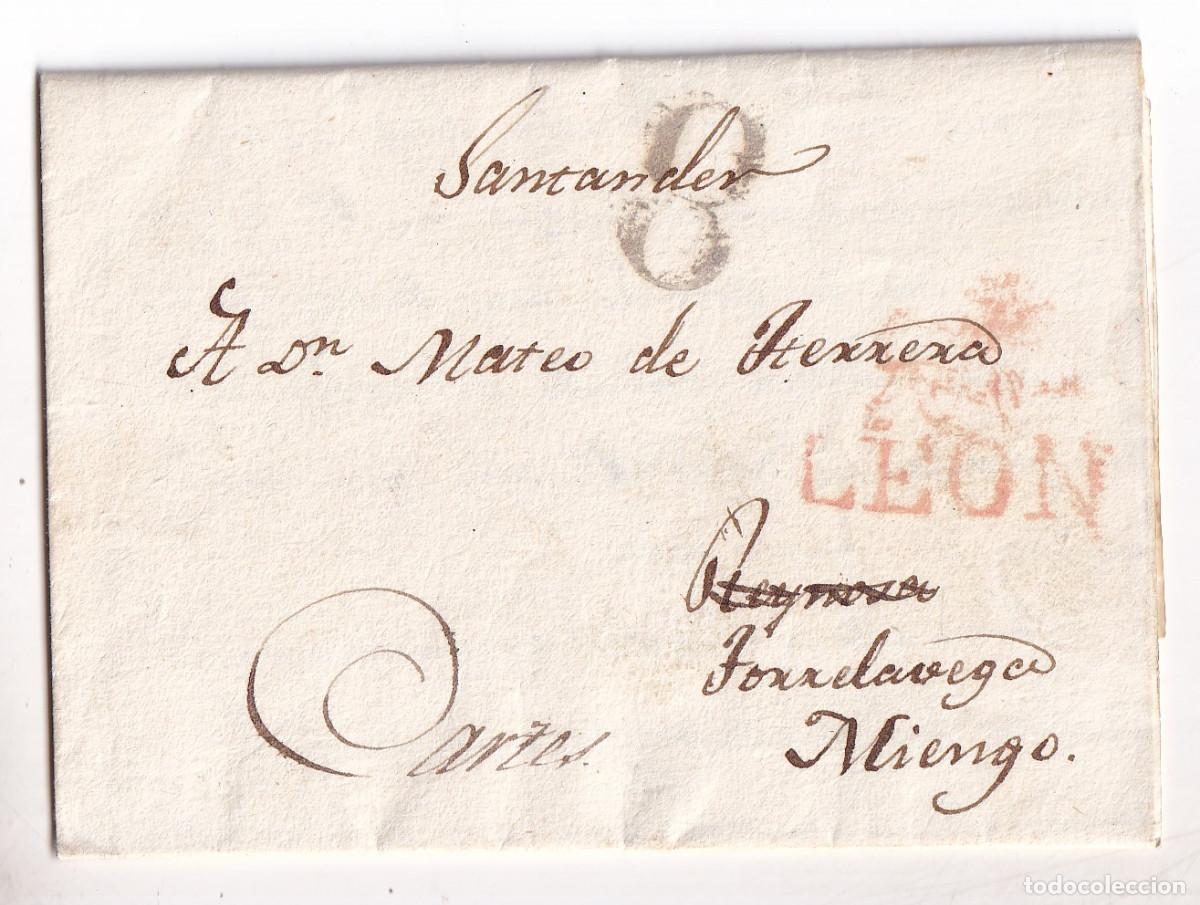 Santander
8
A Dn. Mateo de Herrera
LEON
Reynosa
Torrelavega
Cartes.
Miengo.
todocoleccion